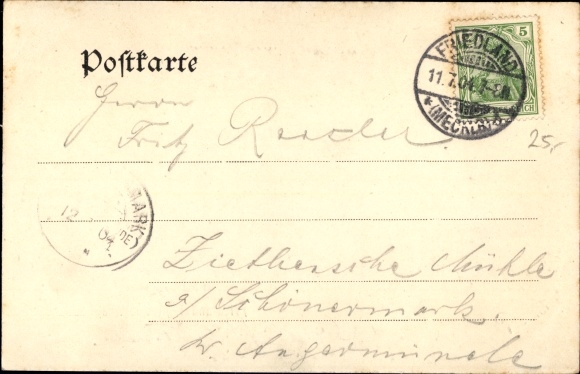 Postkarte
5
FRIEDLAND
11.7.04.7-8N
* (MECKLB) *
Herrn
Fritz Roeder.
25,-
MARK)
12
04.
Ziethensche Mühle
a/ Schönermark.
kr. Angermünde